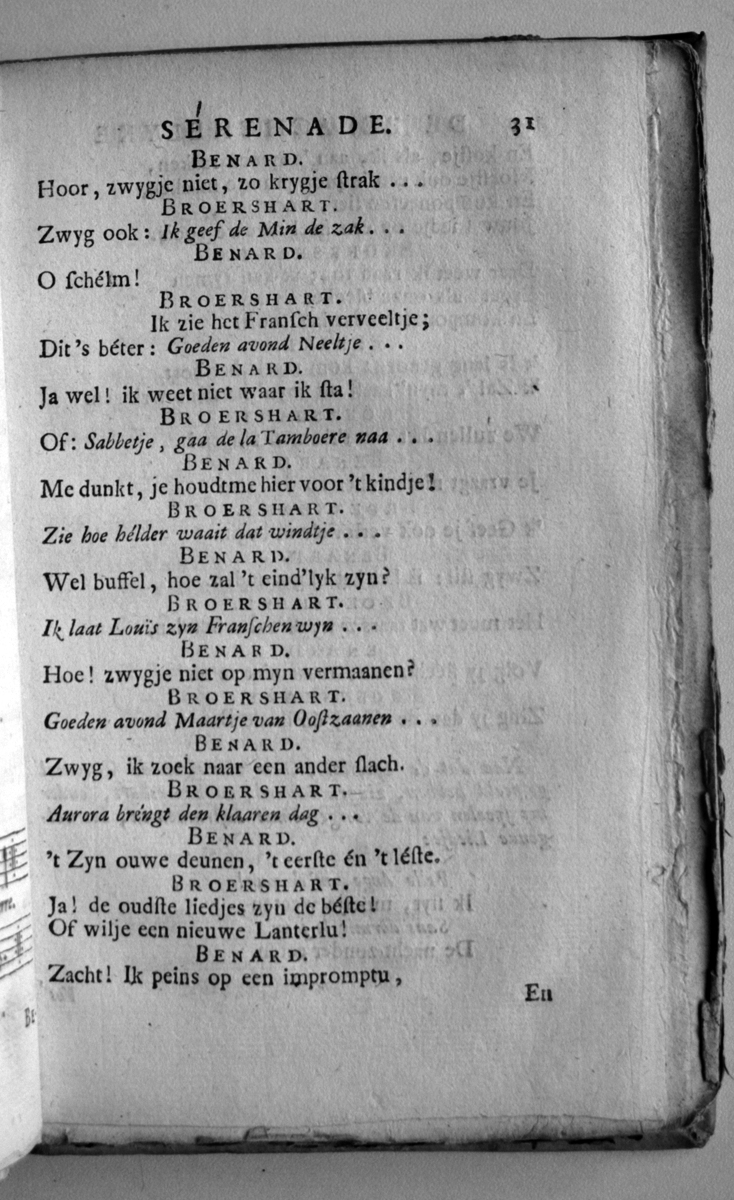 SÉRENADE. 31
BENARD.
Hoor, zwygje niet, zo krygje ſtrak . . .
BROERSHART.
Zwyg ook: Ik geef de Min de zak. . .
BENARD.
O ſchélm!
BROERSHART.
Ik zie het Franſch verveeltje;
Dit 's béter: Goeden avond Neeltje . . .
BENARD.
Ja wel! ik weet niet waar ik ſta!
BROERSHART.
Of: Sabbetje, gaa de la Tamboere naa . . .
BENARD.
Me dunkt, je houdtme hier voor 't kindje!
BROERSHART.
Zie hoe hélder waait dat windtje . . .
BENARD.
Wel buffel, hoe zal 't eind'lyk zyn?
BROERSHART.
Ik laat Louïs zyn Franſchen wyn . . .
BENARD.
Hoe! zwygje niet op myn vermaanen?
BROERSHART.
Goeden avond Maartje van Ooſtzaanen . . .
BENARD.
Zwyg, ik zoek naar een ander ſlach.
BROERSHART.
Aurora bréngt den klaaren dag . . .
BENARD.
't Zyn ouwe deunen, 't eerſte én 't léſte.
BROERSHART.
Ja! de oudſte liedjes zyn de béſte!
Of wilje een nieuwe Lanterlu!
BENARD.
Zacht! Ik peins op een impromptu,
En